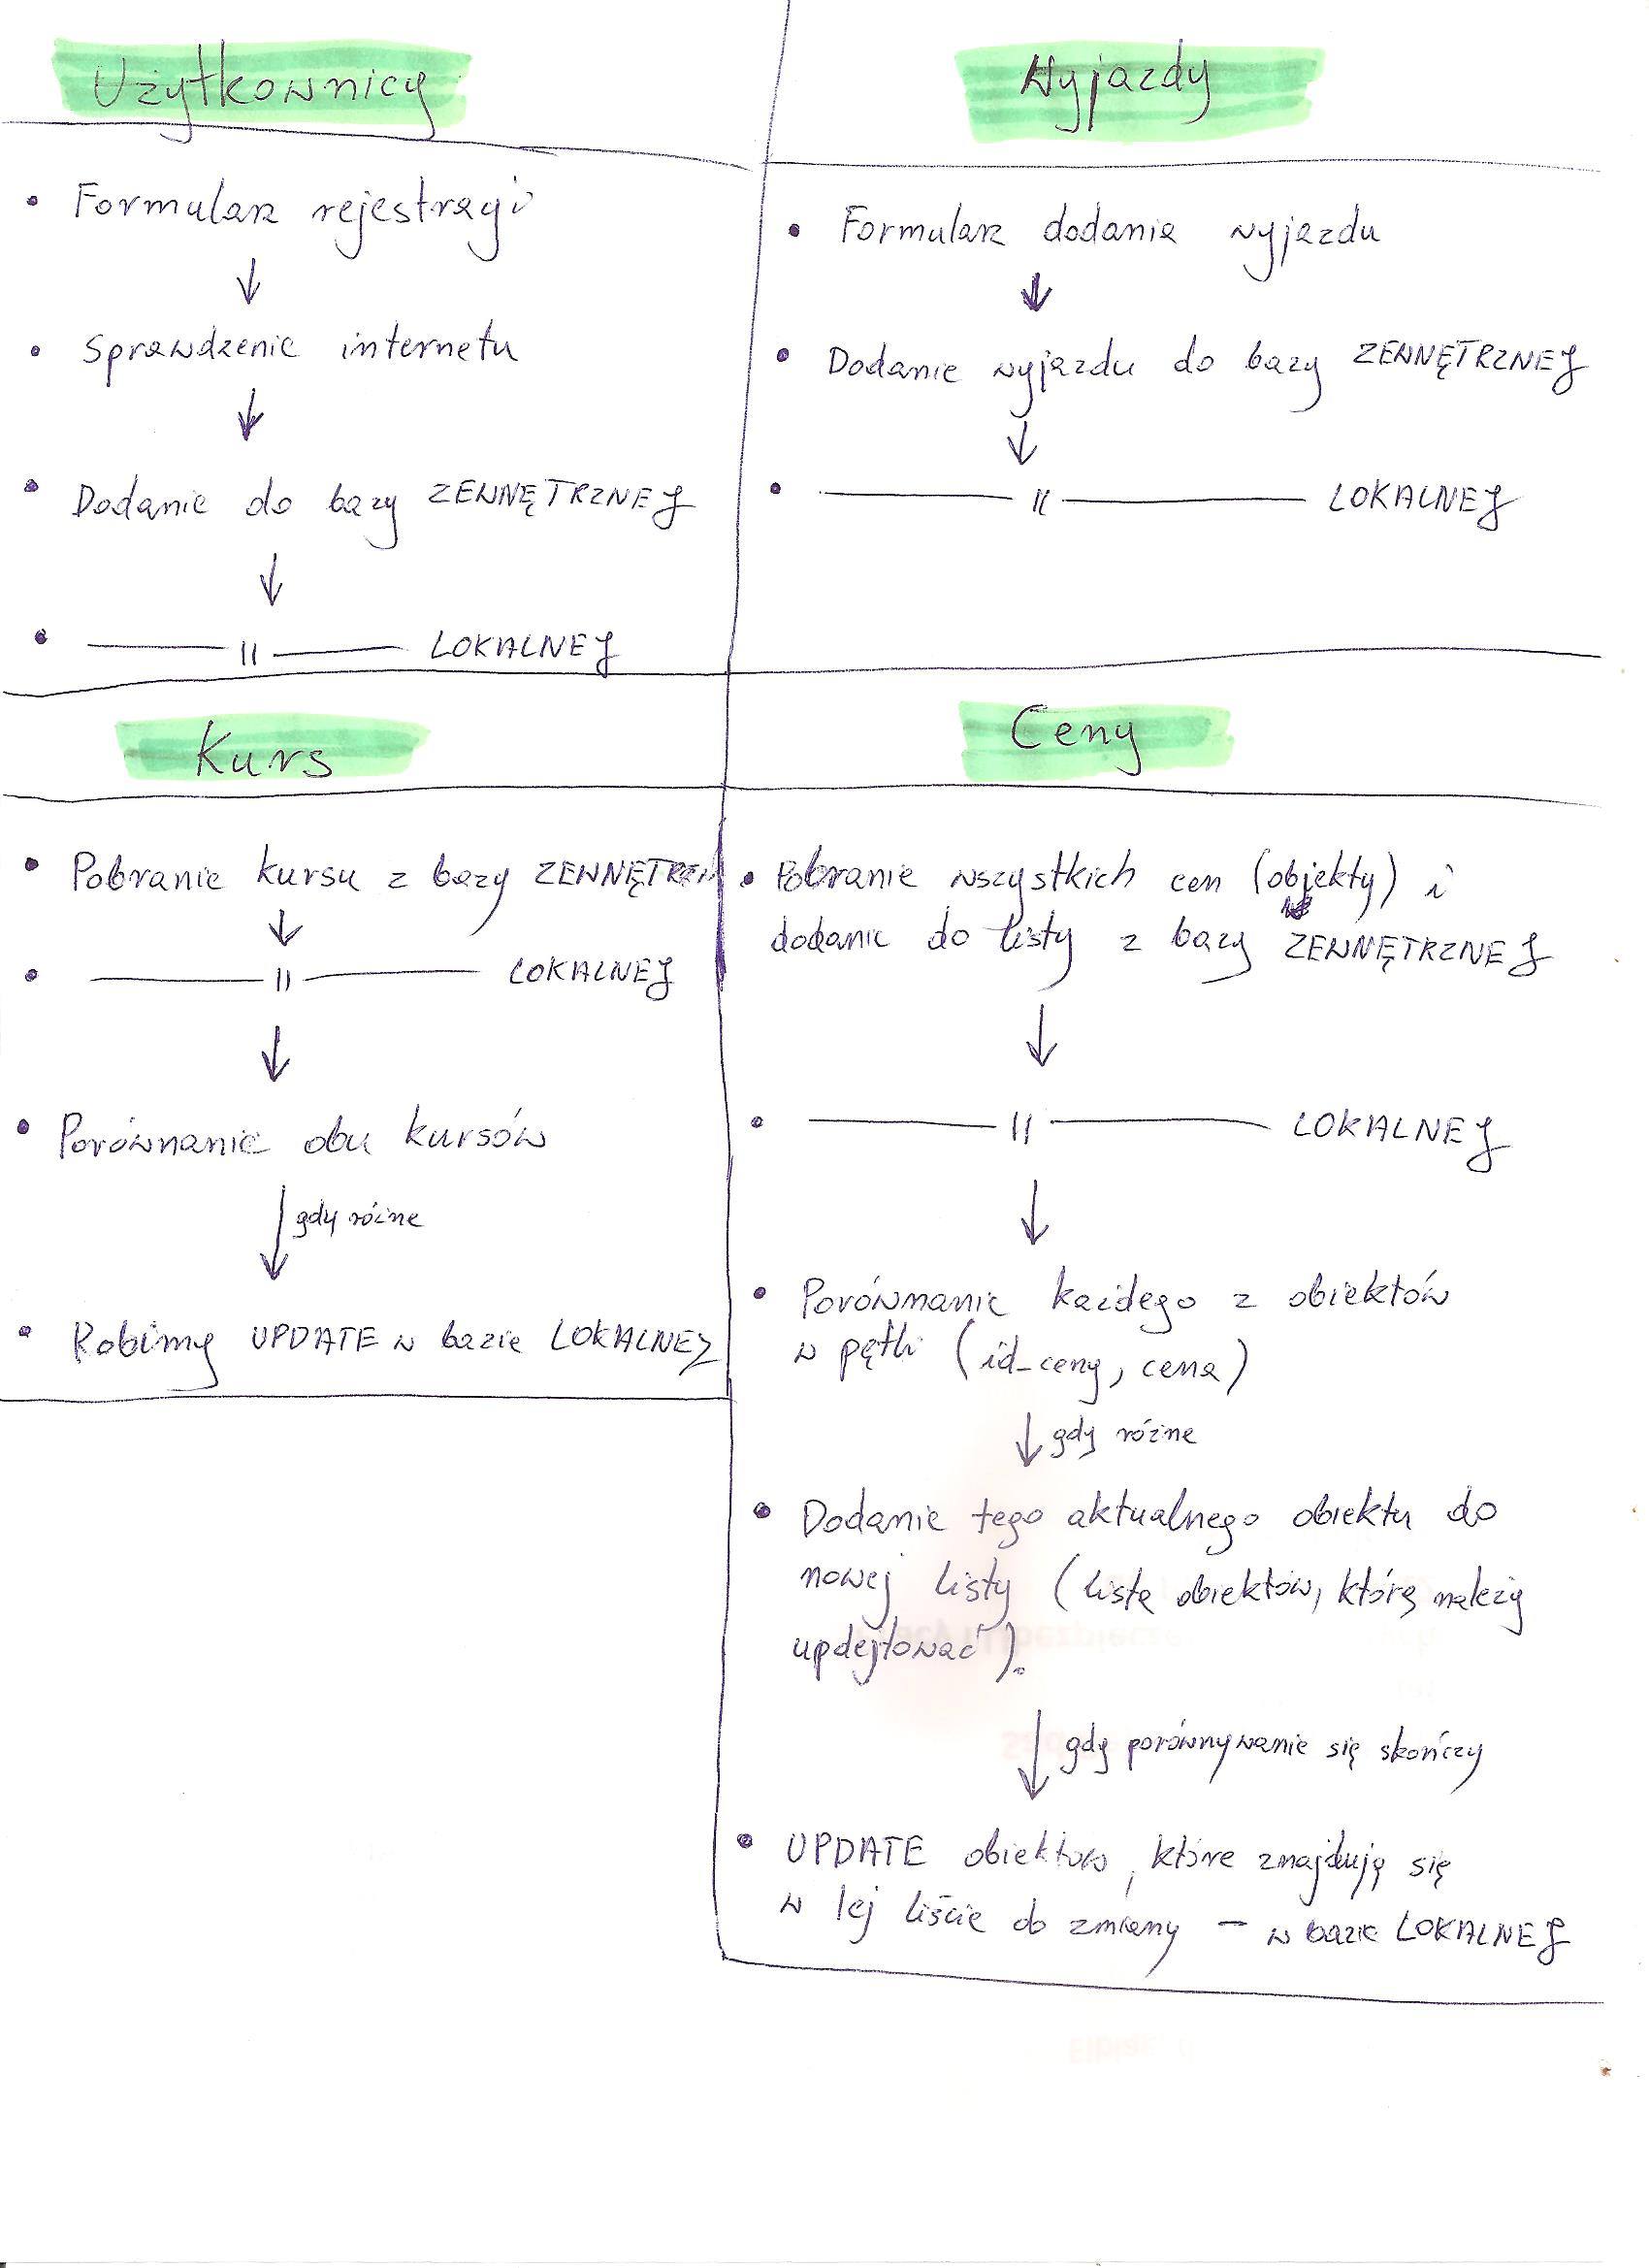 Użytkownicy
• Formularz rejestracji
↓
• Sprawdzenie internetu
↓
• Dodanie do bazy ZEWNĘTRZNEJ
↓
• ——— || ——— LOKALNEJ
Wyjazdy
• Formularz dodania wyjazdu
↓
• Dodanie wyjazdu do bazy ZEWNĘTRZNEJ
↓
• ——— || ——— LOKALNEJ
Kurs
• Pobranie kursu z bazy ZEWNĘTRZN
↓
• ——— || ——— LOKALNEJ
↓
• Porównanie obu kursów
↓ gdy różne
• Robimy UPDATE w bazie LOKALNEJ
Ceny
• Pobranie wszystkich cen (objekty) i
dodanie do listy z bazy ZEWNĘTRZNEJ
↓
• ——— || ——— LOKALNEJ
↓
• Porównanie każdego z obiektów
w pętli (id_ceny, cena)
↓ gdy różne
• Dodanie tego aktualnego obiektu do
nowej listy (lista obiektów, którą należy
updejtować).
↓ gdy porównywanie się skończy
• UPDATE obiektów, które znajdują się
w tej liście do zmiany – w bazie LOKALNEJ